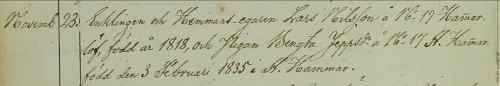 Novemb. 23. Enklingen och Hemmans-egaren Lars Nilsson å No 17 Hamar-
löf, född år 1818, och Pigan Bengta Jeppsdr å No 17 St. Hamar.
född den 3 Februari 1835 i St. Hammar.